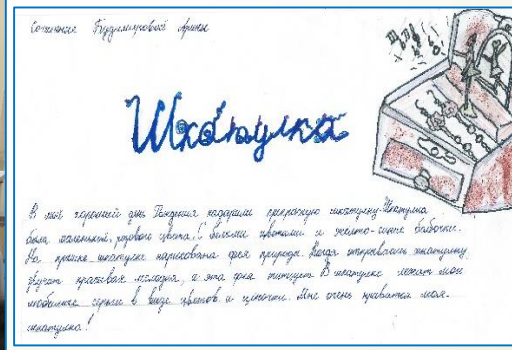 Сочинение Арины
Шкатулка
В мой хороший день Рождения подарили прекрасную шкатулку. Шкатулка
была маленькой, розового цвета. С белыми цветами и желто-синие бабочки.
На крышке шкатулке нарисована фея природы. Когда открываешь шкатулку,
звучит красивая мелодия, а эта фея танцует. В шкатулке лежат мои
любимые серьги в виде цветов и цепочки. Мне очень нравится моя
шкатулка!